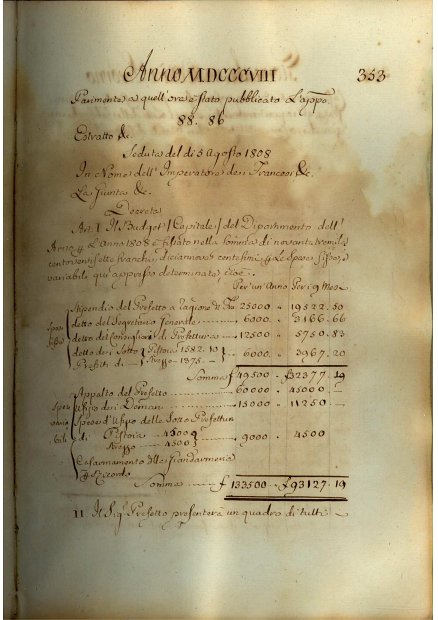 Anno MDCCCVIII 353
Parimente a quell'ora è stato pubblicato l'appo
88. 86
Estratto &c.
Seduta del dì 5 Agosto 1808
In Nome dell'Imperatore dei Francesi &c.
La Junta &c.
Decreta
Art. 1 Il Budget [Capitale] del Dipartimento dell'
Arno p. l'Anno 1808 è fissato nella somma di novanta tremila
centoventisette franchi, diciannove centesimi, p. le spese fisse, e
variabile qui appresso determinate cioè
Per un Anno Per i 9 Mesi
Stipendio del Prefetto a ragione di 25000 19522.50
detto del Segretario Generale 6000 3166.66
detto dei Consiglieri di Prefettura 12500 5750.83
detto dei Sotto Pistoia 1582.10
Prefetti di Arezzo 1375 6000 3967.20
Somma £ 49500 £ 32377 19
Appalto del Prefetto 60000 45000
15000 11250
Spese d'Ufizio delle Sotto Prefetture
di Pistoia 4500
Arezzo 4500 9000 4500
Casarmamento della Giandarmeria
p. Ricordo
Somma £ 133500 £ 93127.19
II Il Sig. Prefetto presenterà un quadro di tutti